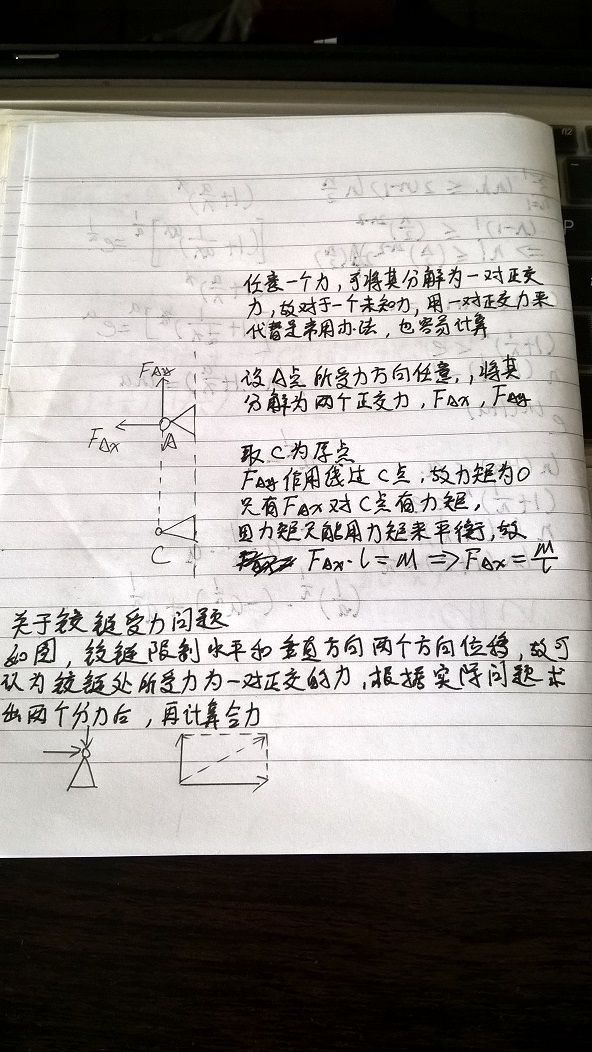 任意一个力,可将其分解为一对正交
力,故对于一个未知力,用一对正交力来
代替是常用办法,也容易计算
设A点所受力方向任意,将其
分解为两个正交力,FAx,FAy
FAy
FAx
A
C
取C为原点
FAy作用线过C点,故力矩为0
只有FAx对C点有力矩,
因力矩只能用力矩来平衡,故
FAx·l=M⇒FAx=M/l
关于铰链受力问题
如图,铰链限制水平和垂直方向两个方向位移,故可
认为铰链处所受力为一对正交的力,根据实际问题求
出两个分力后,再计算合力
f12
P